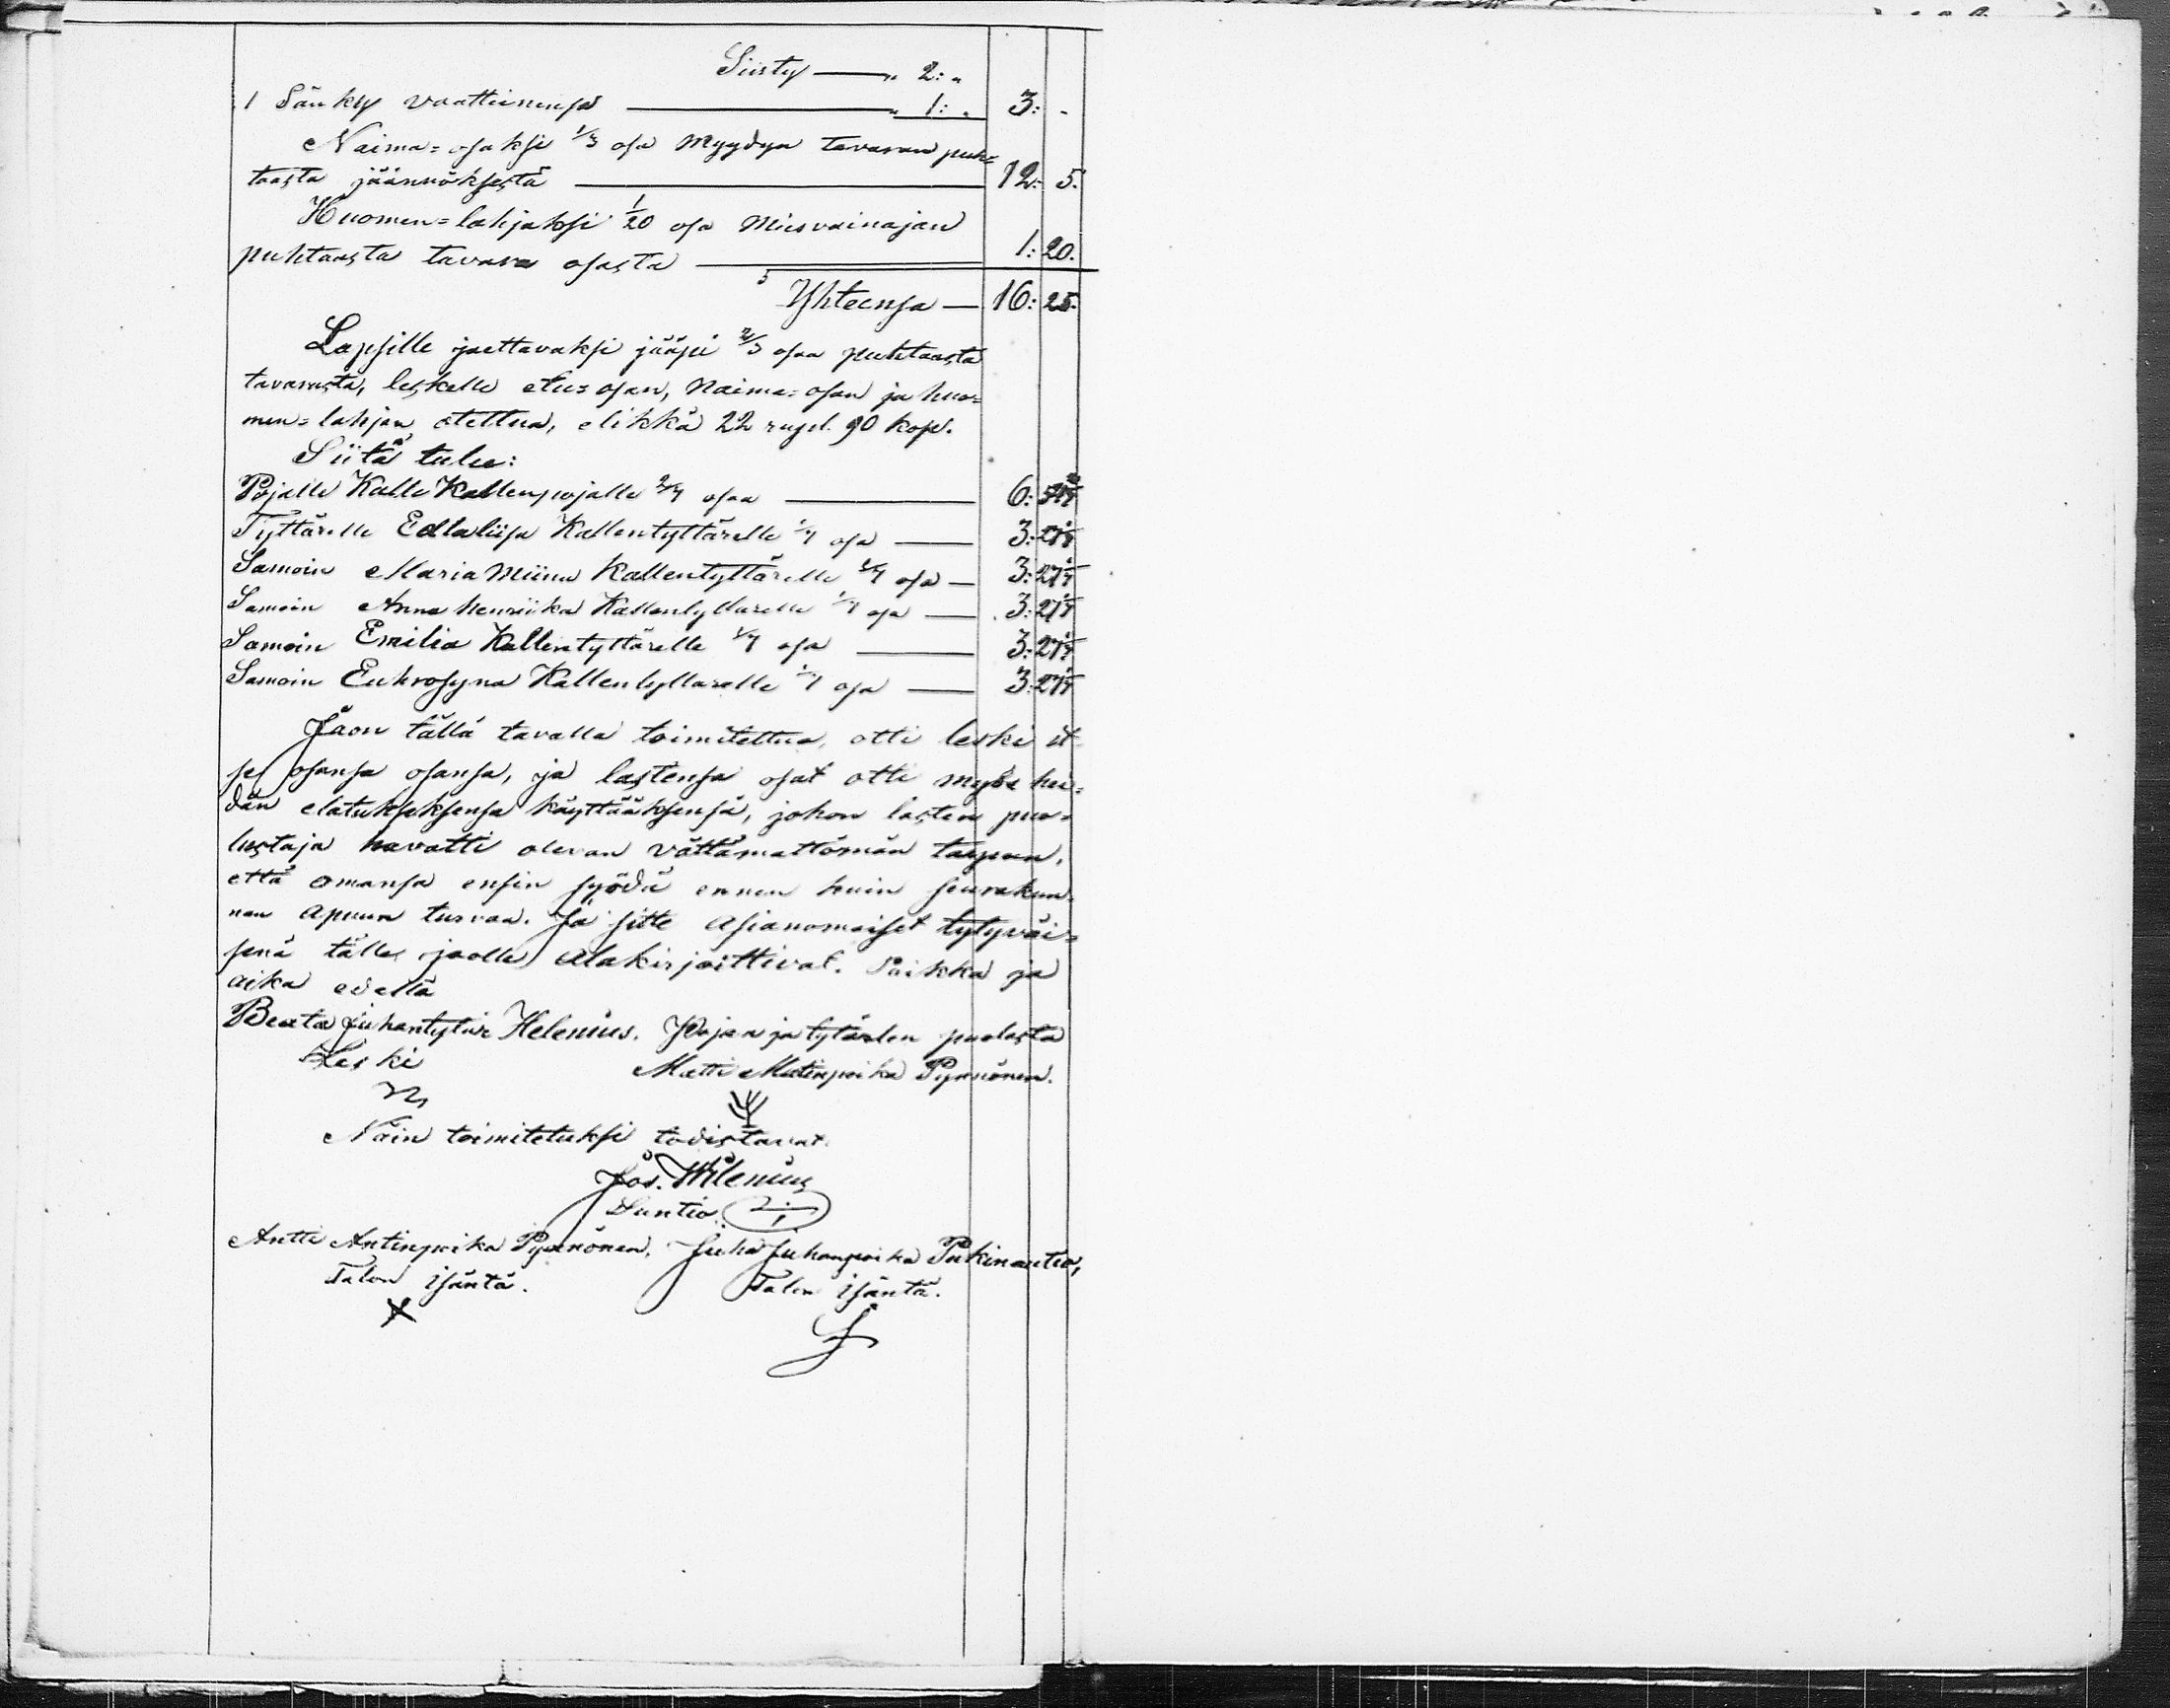 Siirty — „ 2: „
1 Sänky vaattininsa — „ 1: „ 3: -
Naima=osaksi 1/3 osa Myydyn tavaran puh=
taasta jäännöksestä — 12: 5.
Huomen=lahjaksi 1/20 osa Miesvainajan
puhtaasta tavara osasta — 1: 20.
Yhteensä — 16: 25.
Lapsille jaettavaksi jääpi 2/3 osaa puhtaasta
tavarasta, leskelle etu=osan, Naima=osan ja huo=
men=lahjan otettua, elikkä 22 rupl. 90 kop.
Siitä tulee:
Pojalle Kalle Kallenpojalle 2/7 osaa — 6: 54 2/7
Tyttärelle Edlaliisa Kallentyttärelle 1/7 osa — 3: 27 1/7
Samoin Maria Miina Kallentyttärelle 1/7 osa — 3: 27 1/7
Samoin Anna Henriika Kallentyttärelle 1/7 osa — 3: 27 1/7
Samoin Emilia Kallentyttärelle 1/7 osa — 3: 27 1/7
Samoin Eukrosyna Kallentyttärelle 1/7 osa — 3: 27 1/7
Jaon tällä tavalla toimitettua, otti leski it
se osansa osansa, ja lastensa osat otti myös hei=
dän elatukseksensa käyttääksensä, johon lasten puo=
lustaja havatti olevan vättämattömän tarpeen,
että omansa ensin syödä ennen kuin seurakun=
nan apuun turvaa. Ja sitte Asianomaiset tytyväi=
senä tälle jaolle Alakirjoittivat. Paikka ja
aika edellä
Beata Juhantytär Helenius. Pojan ja tytärten puolesta
Leski Matti Matinpoika Pyrnönen.
Näin toimitetuksi todistavat.
Jos. Wilenius
Suntio.
Antti Antinpoika Pyrnönen, Juha Juhanpoika Pukinautio,
Talon isäntä. Talon isäntä.